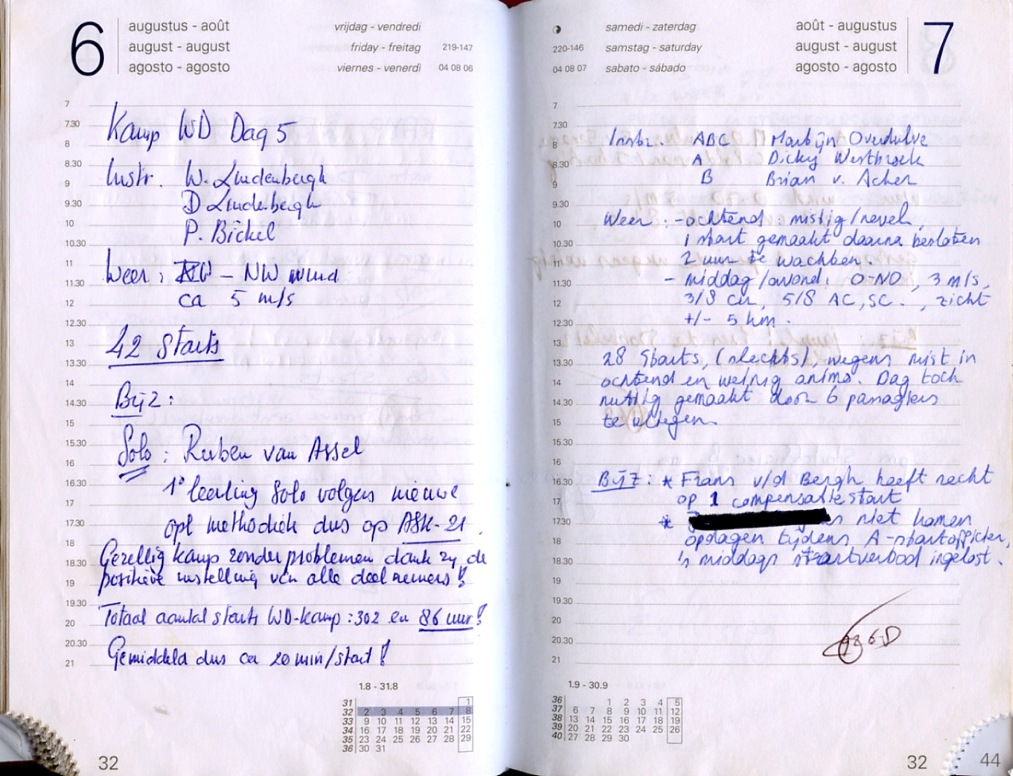 6
augustus - août
august - august
agosto - agosto
vrijdag - vendredi
friday - freitag 219-147
viernes - venerdi 04 08 06
7
7.30
8
8.30
9
9.30
10
10.30
11
11.30
12
12.30
13
13.30
14
14.30
15
15.30
16
16.30
17
17.30
18
18.30
19
19.30
20
20.30
21
Kamp WD Dag 5
Instr. W. Lindenbergh
D Lindenbergh
P. Bickel
Weer : - NW wind
ca 5 m/s
42 Starts
Bijz:
Solo : Ruben van Assel
1e leerling solo volgens nieuwe
opl methodiek dus op ASK-21.
Gezellig kamp zonder problemen dank zij de
positieve instelling van alle deelnemers!
Totaal aantal starts WD-kamp : 302 en 86 uur!
Gemiddeld dus ca 20 min/start!
1.8 - 31.8
31 1
32 2 3 4 5 6 7 8
33 9 10 11 12 13 14 15
34 16 17 18 19 20 21 22
35 23 24 25 26 27 28 29
36 30 31
32
samedi - zaterdag
220-146 samstag - saturday
04 08 07 sabato - sábado
août - augustus
august - august
agosto - agosto
7
7
7.30
8
8.30
9
9.30
10
10.30
11
11.30
12
12.30
13
13.30
14
14.30
15
15.30
16
16.30
17
17.30
18
18.30
19
19.30
20
20.30
21
Instr. ABC Martijn Overdulve
A Dicky Westbroek
B Brian v. Acker
Weer : - ochtend : mistig/nevel,
1 start gemaakt daarna besloten
2 uur te wachten.
- middag/avond : O-NO, 3 m/s,
3/8 cu, 5/8 AC, SC. , zicht
+/- 5 km.
28 Starts, (slechts), wegens mist in
ochtend en weinig animo. Dag toch
nuttig gemaakt door 6 passagiers
te vliegen.
Bijz : * Frans v/d Bergh heeft recht
op 1 compensatiestart
* niet komen
opdagen tijdens A-startofficier,
's middags startverbod ingelost.
1.9 - 30.9
36 1 2 3 4 5
37 6 7 8 9 10 11 12
38 13 14 15 16 17 18 19
39 20 21 22 23 24 25 26
40 27 28 29 30
32
44